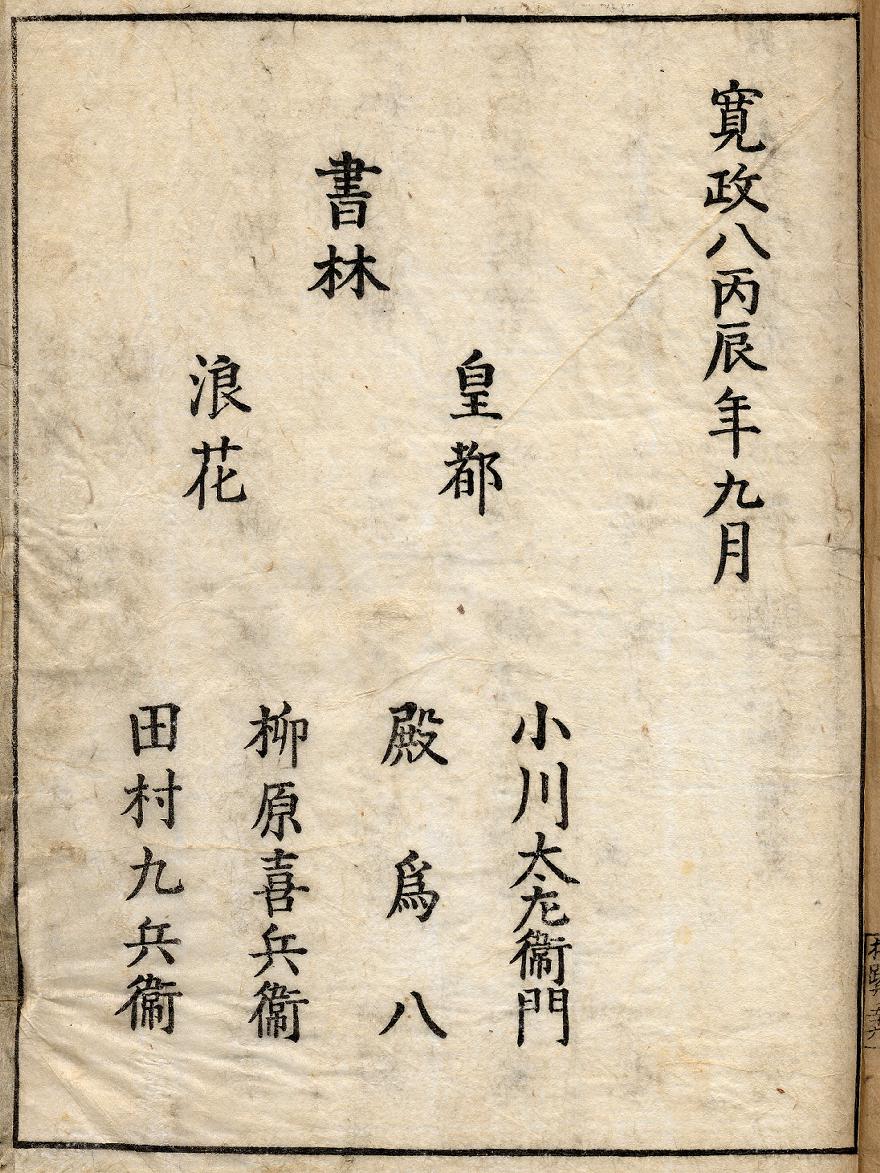 寛政八丙辰年九月
書林
皇都
小川太左衞門
殿爲八
浪花
柳原喜兵衞
田村九兵衞